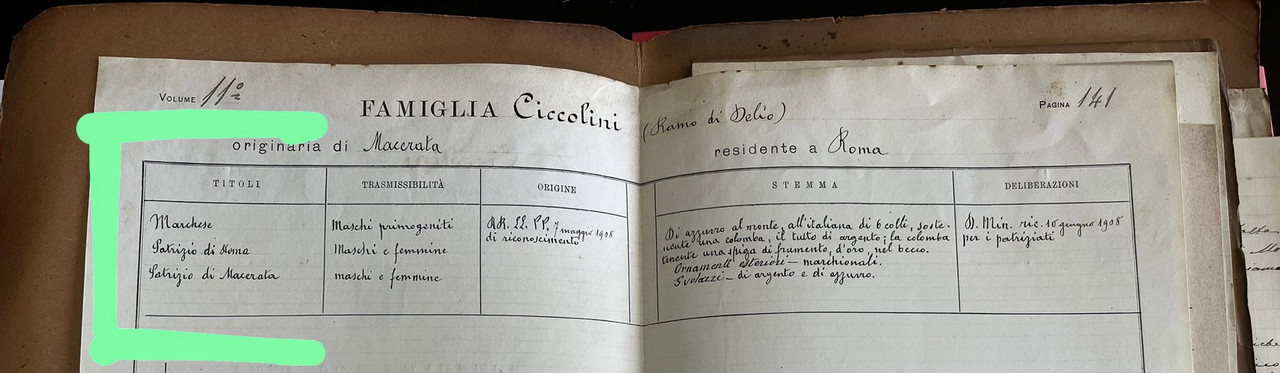 VOLUME 11º
FAMIGLIA Ciccolini (Ramo di Delio)
PAGINA 141
originaria di Macerata
residente a Roma
TITOLI
TRASMISSIBILITÀ
ORIGINE
STEMMA
DELIBERAZIONI
Marchese
Patrizio di Roma
Patrizio di Macerata
Maschi primogeniti
Maschi e femmine
maschi e femmine
RR. LL. PP. 7 maggio 1908
di riconoscimento
Di azzurro al monte, all'italiana di 6 colli, soste-
nente una colomba, il tutto di argento; la colomba
tenente una spiga di frumento, d'oro, nel becco.
Ornamenti esteriori - marchionali.
Svolazzi - di argento e di azzurro.
D. Min. ric. 10 giugno 1908
per i patriziati